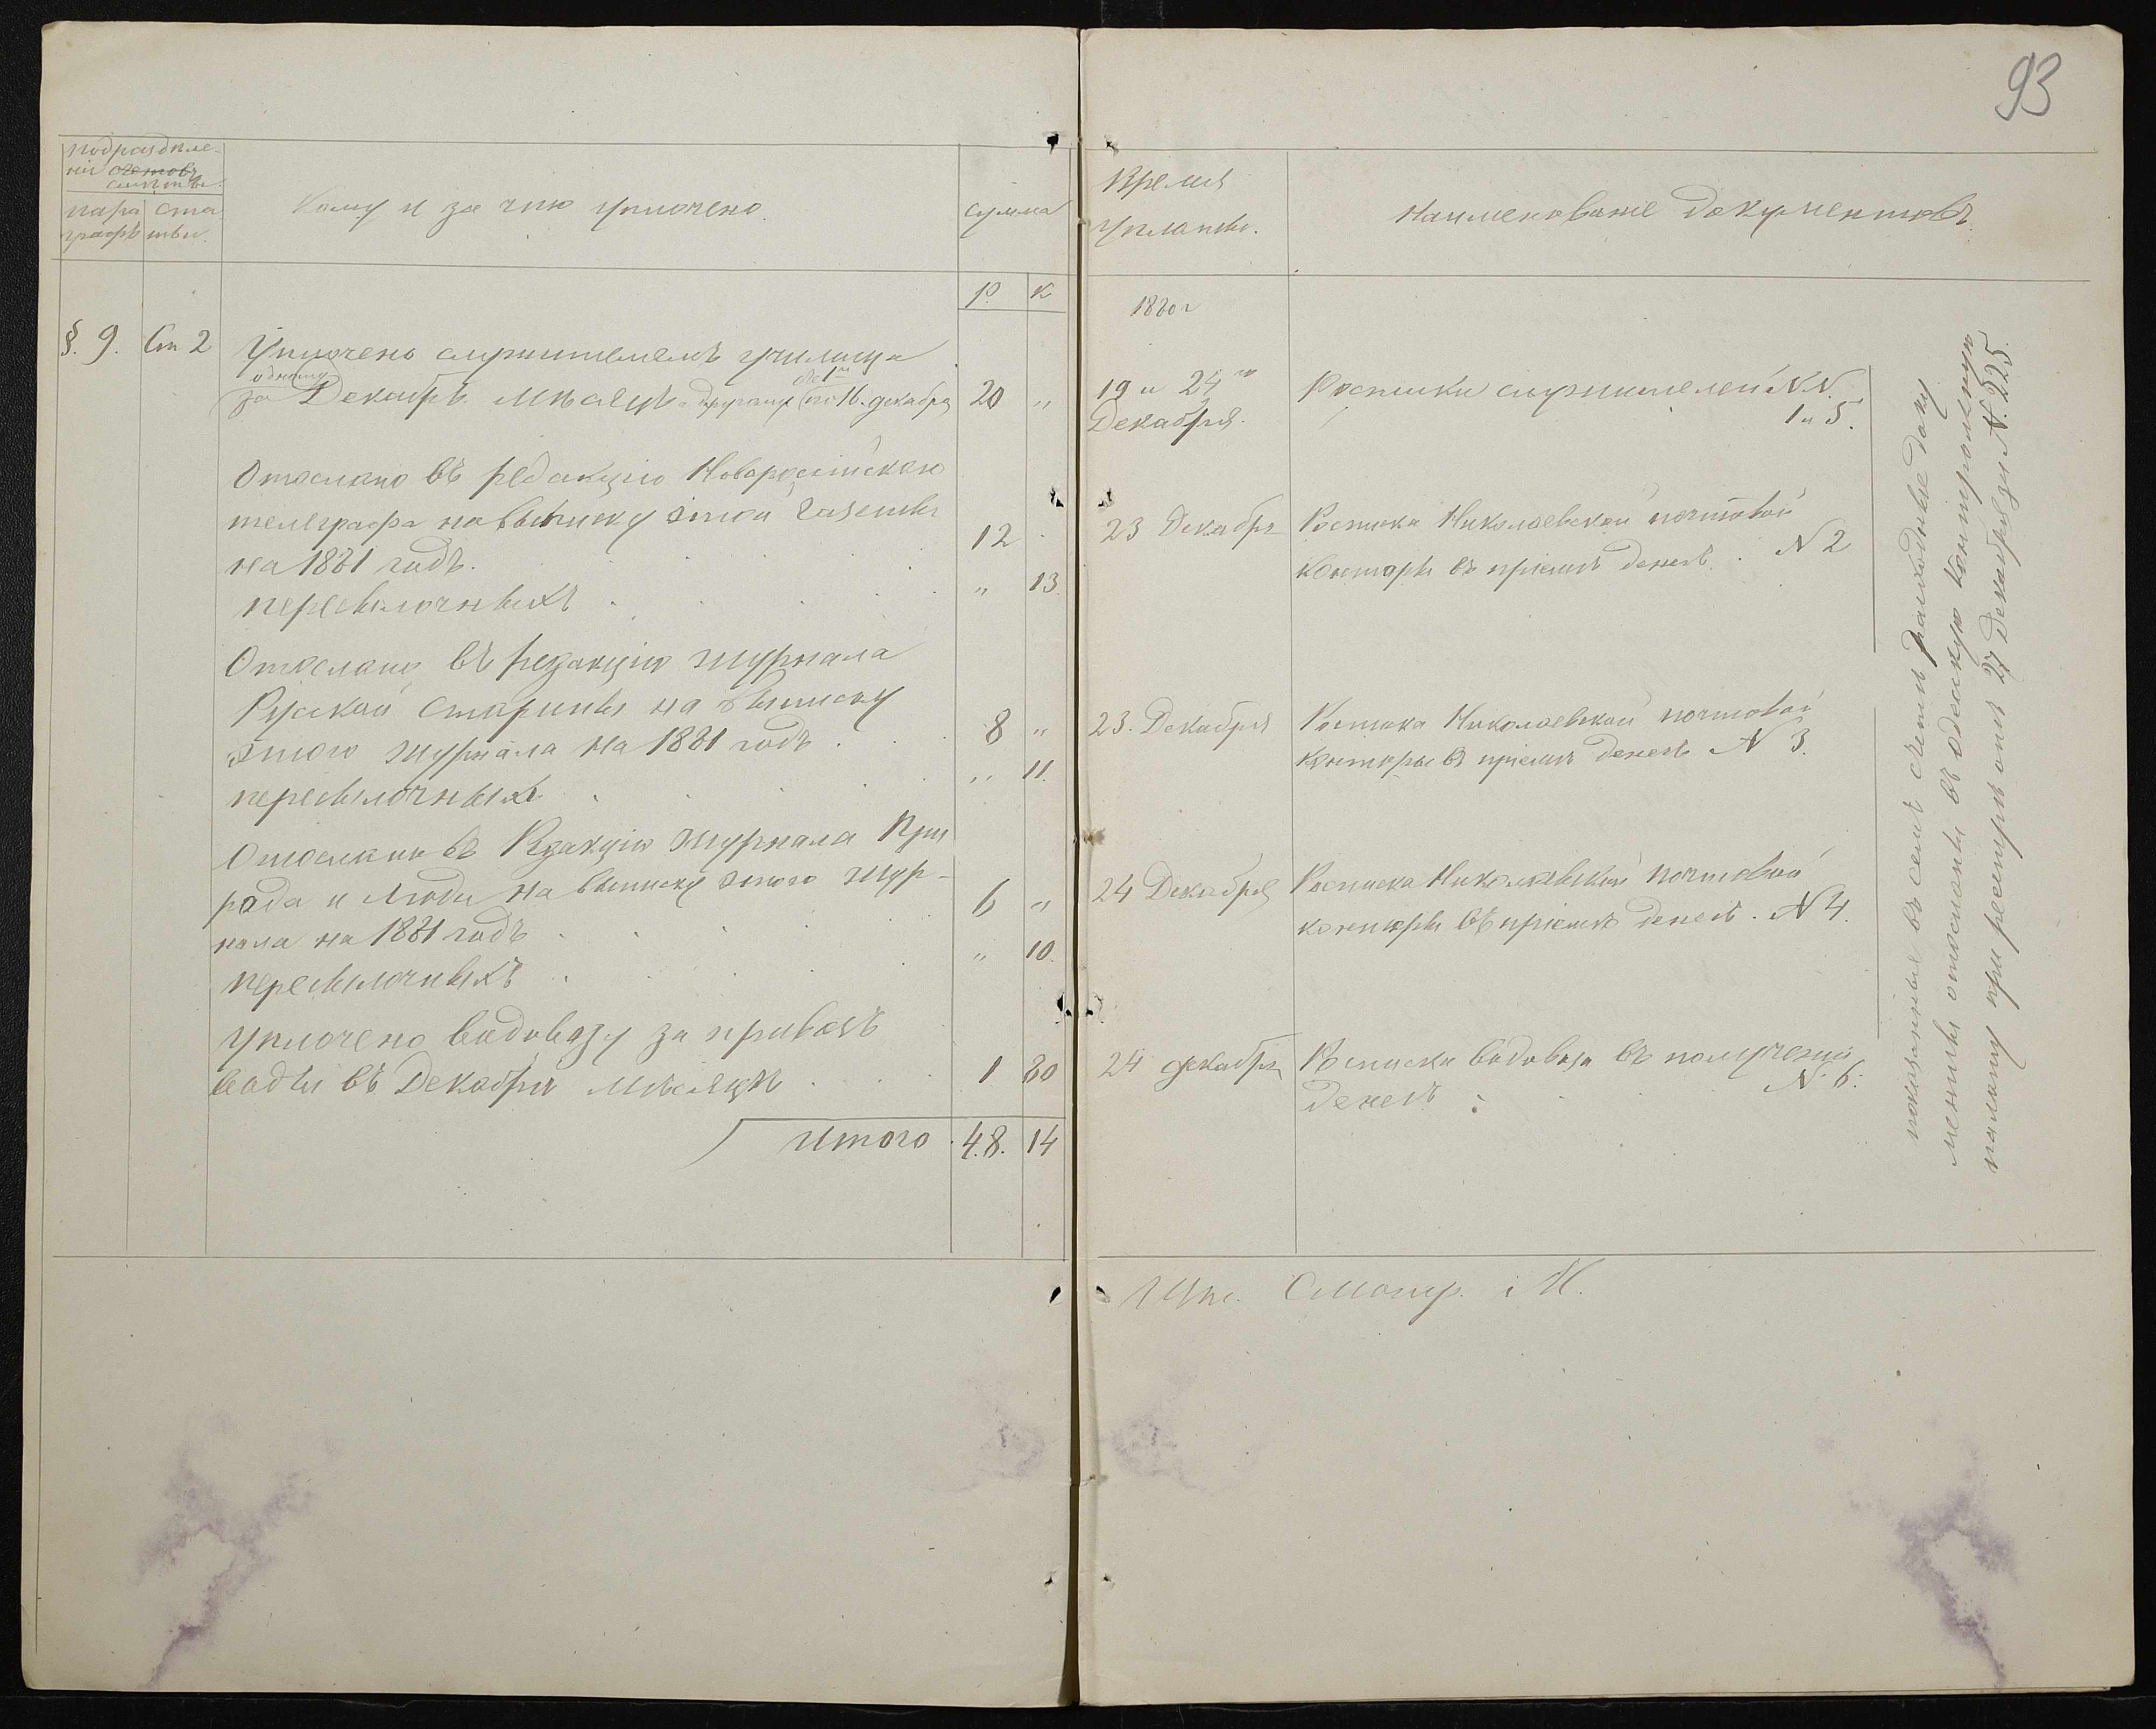 93
подраздѣле-
нія счетовъ
смѣты.
пара
графъ
ста
тьи.
Кому и за что уплочено.
сумма
Р. К
§. 9. Ст 2
Уплочено служителямъ училища
одному
за Декабрь мѣсяцъ а другому съ 1го по 16. декабря 20 „
Отослано въ редакцію Новороссійскаго
телеграфа на выписку этой газеты
на 1881 годъ. 12
пересылочныхъ „ 13.
Отослано въ редакцію журнала
Русской Старины на выписку
этого журнала на 1881 годъ 8 „
пересылочныхъ „ 11.
Отослано въ Редакцію журнала При
рода и Люди на выписку этого жур-
нала на 1881 годъ 6 „
пересылочныхъ „ 10.
уплочено водовозу за привозъ
воды въ Декабрѣ мѣсяцѣ 1 80
Итого 48. 14
Время
уплаты.
Наименованіе документовъ.
1880 г
19 и 24го
Декабря.
Росписки служителей N.N.
1 и 5.
23 Декабря
Росписка Николаевской почтовой
конторы въ пріемѣ денегъ. N 2
23. Декабря
Росписка Николаевской почтовой
конторы въ пріемѣ денегъ N 3.
24 Декабря
Росписка Николаевской почтовой
конторы въ пріемѣ денегъ. N 4.
24 декабря
Росписка водовоза въ полученіи
денегъ N. 6.
показанные въ семъ счетѣ расходные доку
менты отосланы въ одесскую контрольную
палату при реестрѣ отъ 27 Декабря за N. 225.
Шт. Смотр. М.